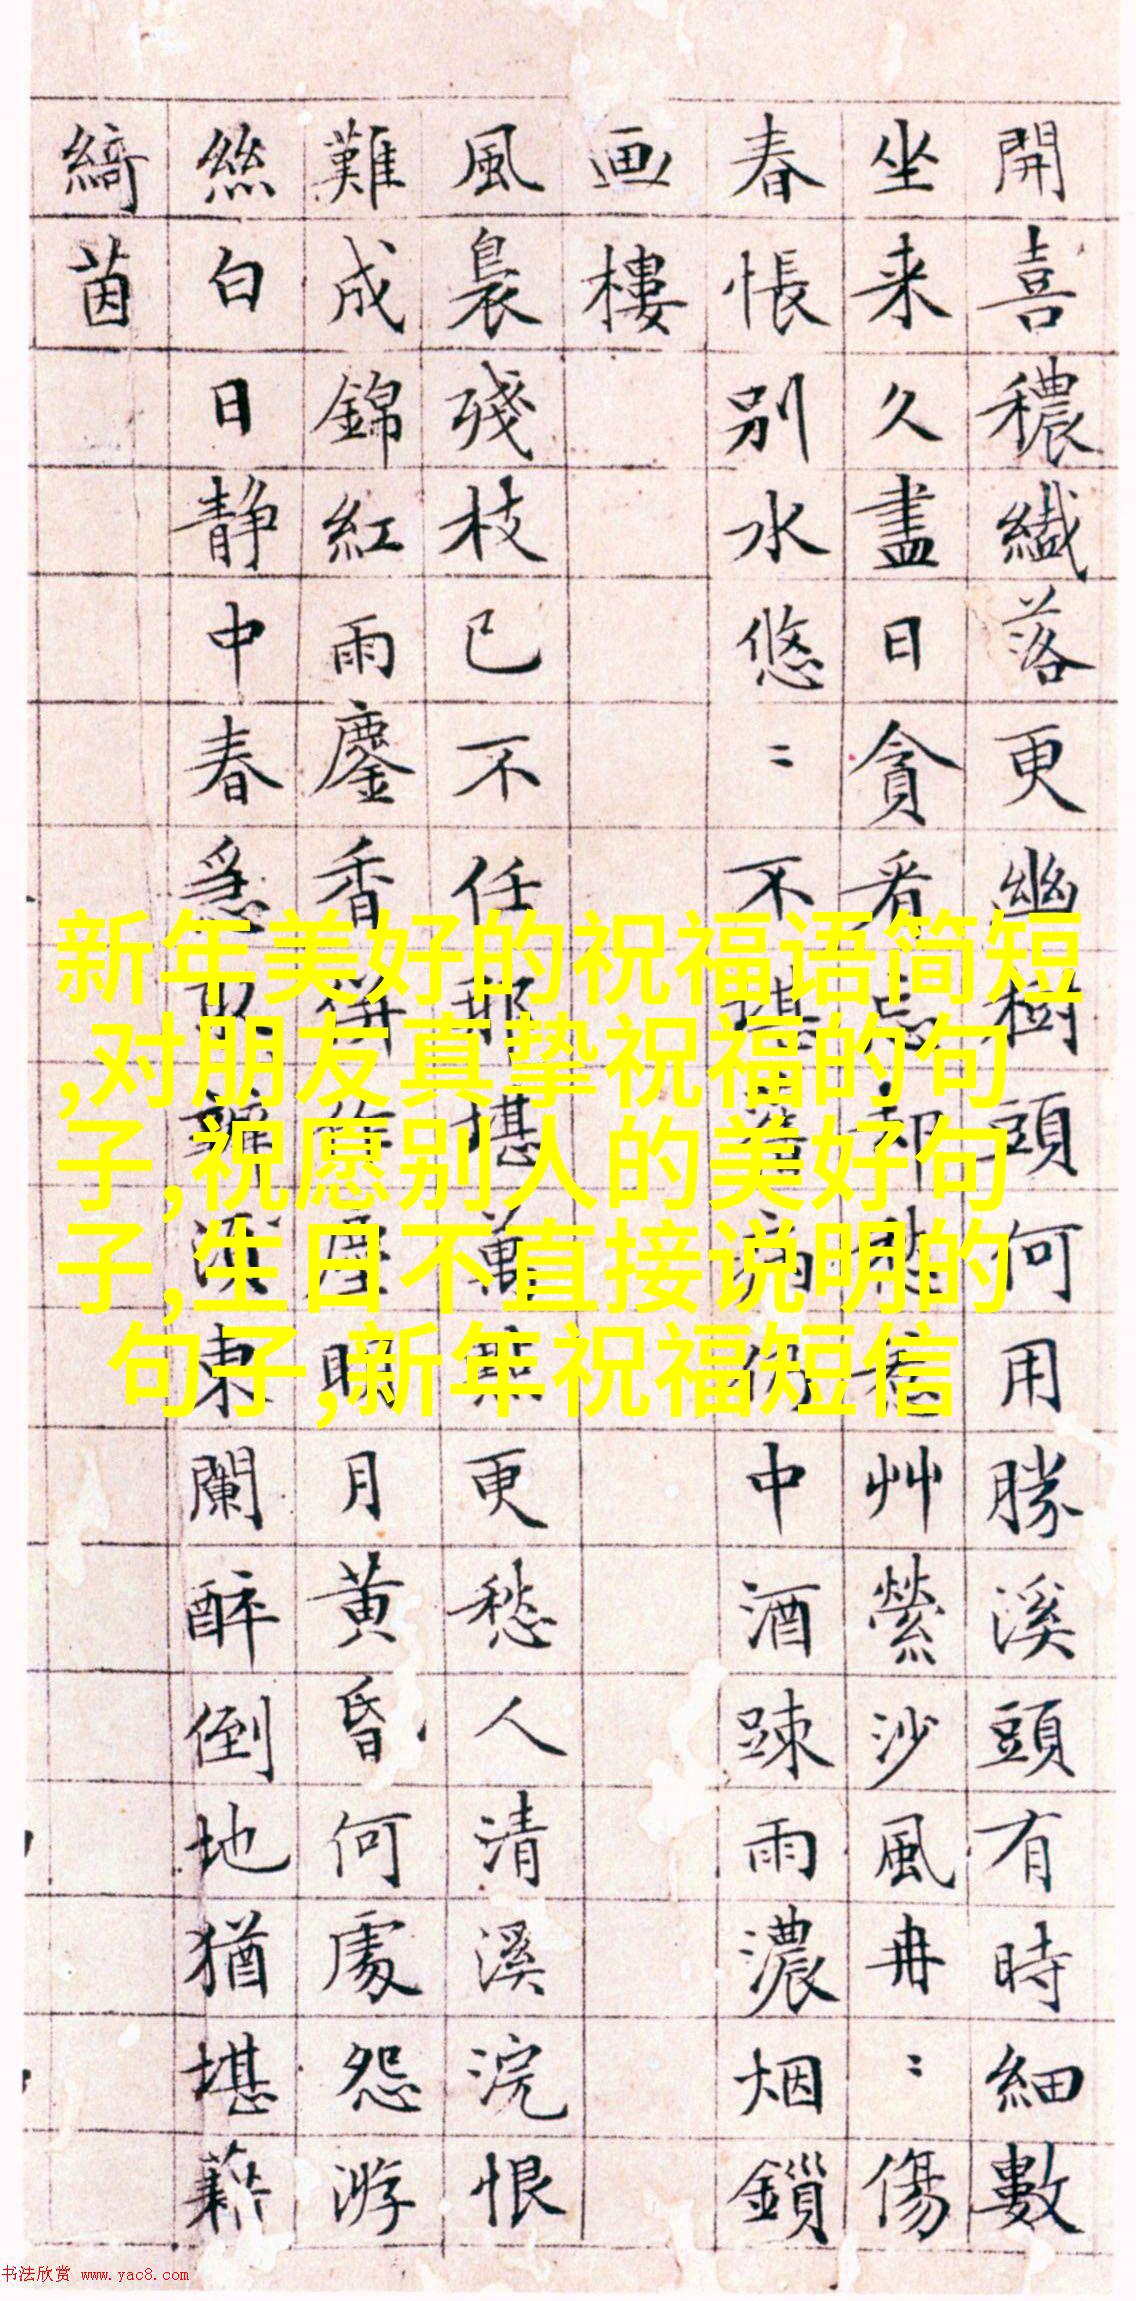 開喜穠纖落更幽樹頭何用勝溪頭有時細數
坐来久盡日貪看忘却愁惹艸縈沙風冉〻傷
春悵别水悠〻不堪舊病仍中酒踈雨濃烟鎖
画樓
風裊殘枝已不任那堪萬點更愁人清溪浣恨
難成錦紅雨鏖香併作塵明月黄昏何處怨游
絲白日静中春急辦東闌醉倒地猶堪藉
綺茵
新年美好的祝福语简短
,对朋友真挚祝福的句
子,祝愿别人的美好句
子,生日不直接说明的
句子,新年祝福短信
书法欣赏 www.yac8.com